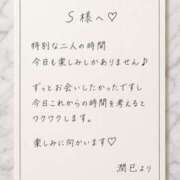 S様へ♡
特別な二人の時間
今日も楽しみしかありません♪
ずっとお会いしたかったですし
今日これからの時間を考えると
ワクワクします。
楽しみに向かいます♡
潤巳より